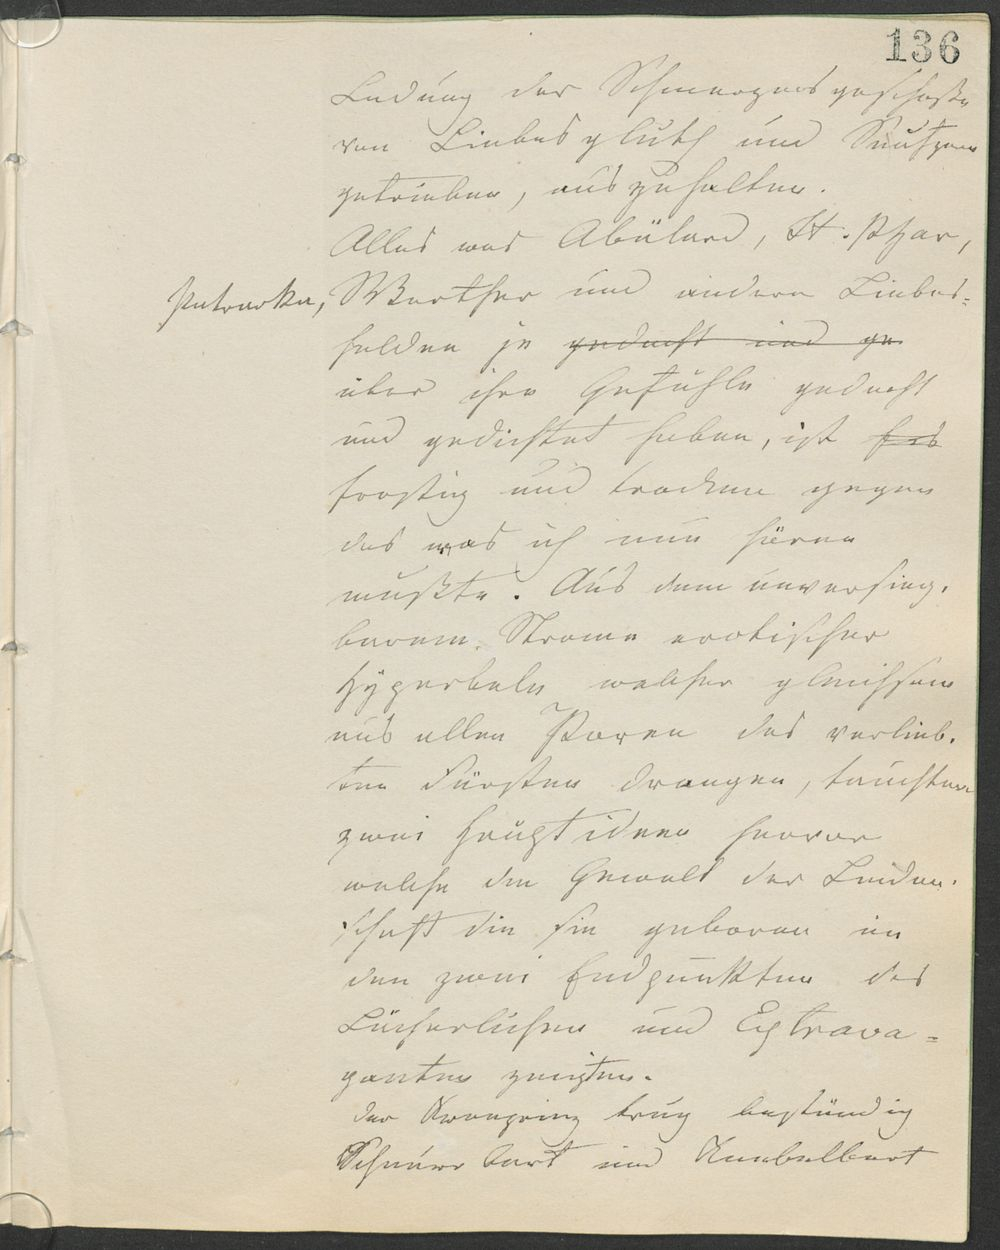 136
Ladung der Schmerzensgeschoße
von Liebesgluth und Seufzern
getrieben, auszuhalten.
Alles was Abälard, St. Pyar,
Petrarka, Werther und andere Liebes=
helden je gedacht und ge
über ihre Gefühle gedacht
und gedichtet haben, ist
frostig und trocken gegen
das was ich nun hören
mußte. Aus dem unversieg.
barem Strome erotischer
Hyperbeln welcher gleichsam
aus allen Poren des verlieb.
ten Fürsten drangen, tauchten
zwei Hauptideen hervor
welche die Gewalt der Leiden.
schaft die sie geboren in
den zwei Endpunkten des
Lächerlichen und Extrava=
ganten zeigten.
Der Kronprinz trug beständig
Schnurrbart und Knebelbart